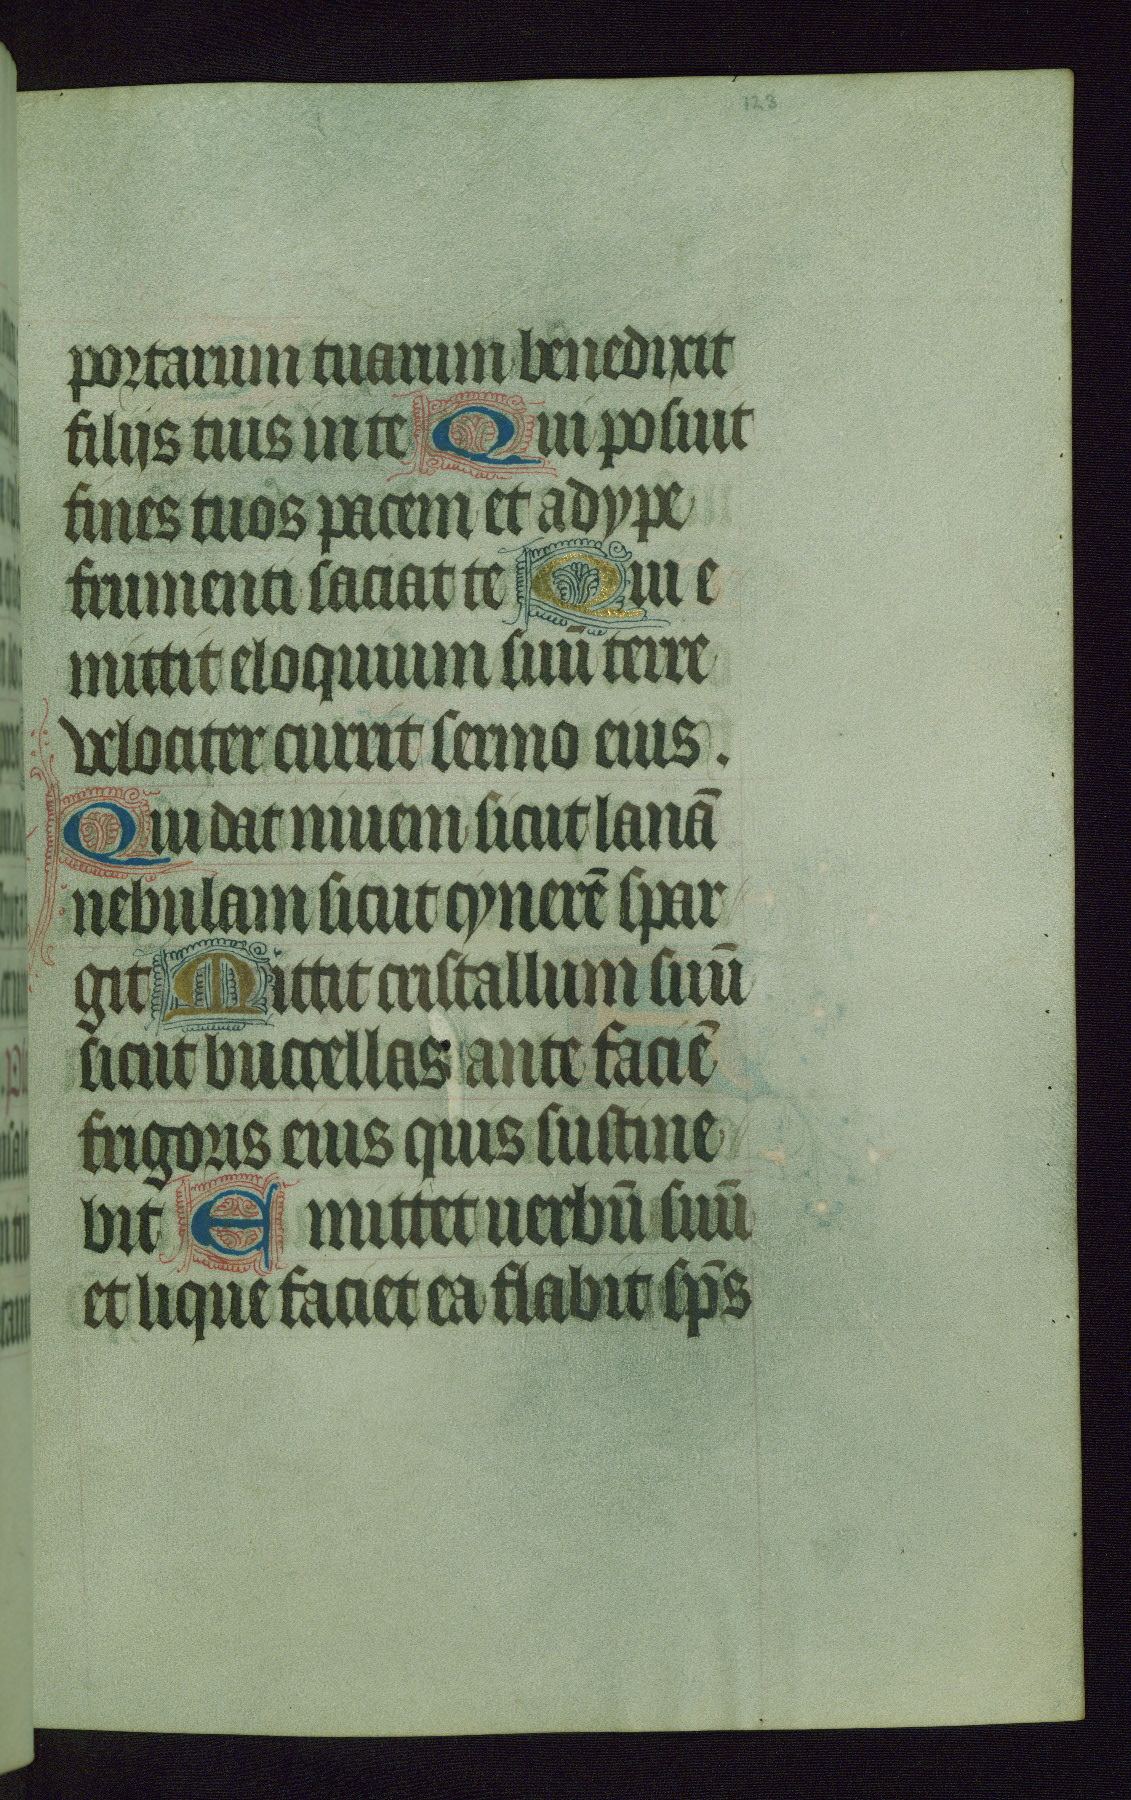 123
portarum tuarum benedixit
filijs tuis in te Qui posuit
fines tuos pacem et adype
frumenti saciat te Qui e
mittit eloquium suū terre
velociter currit sermo eius.
Qui dat niuem sicut lanā
nebulam sicut cynerē spar
git Mittit cristallum suū
sicut buccellas ante faciē
frigoris eius quis sustine
bit Emittet uerbū suū
et lique faciet ea flabit sp̄s